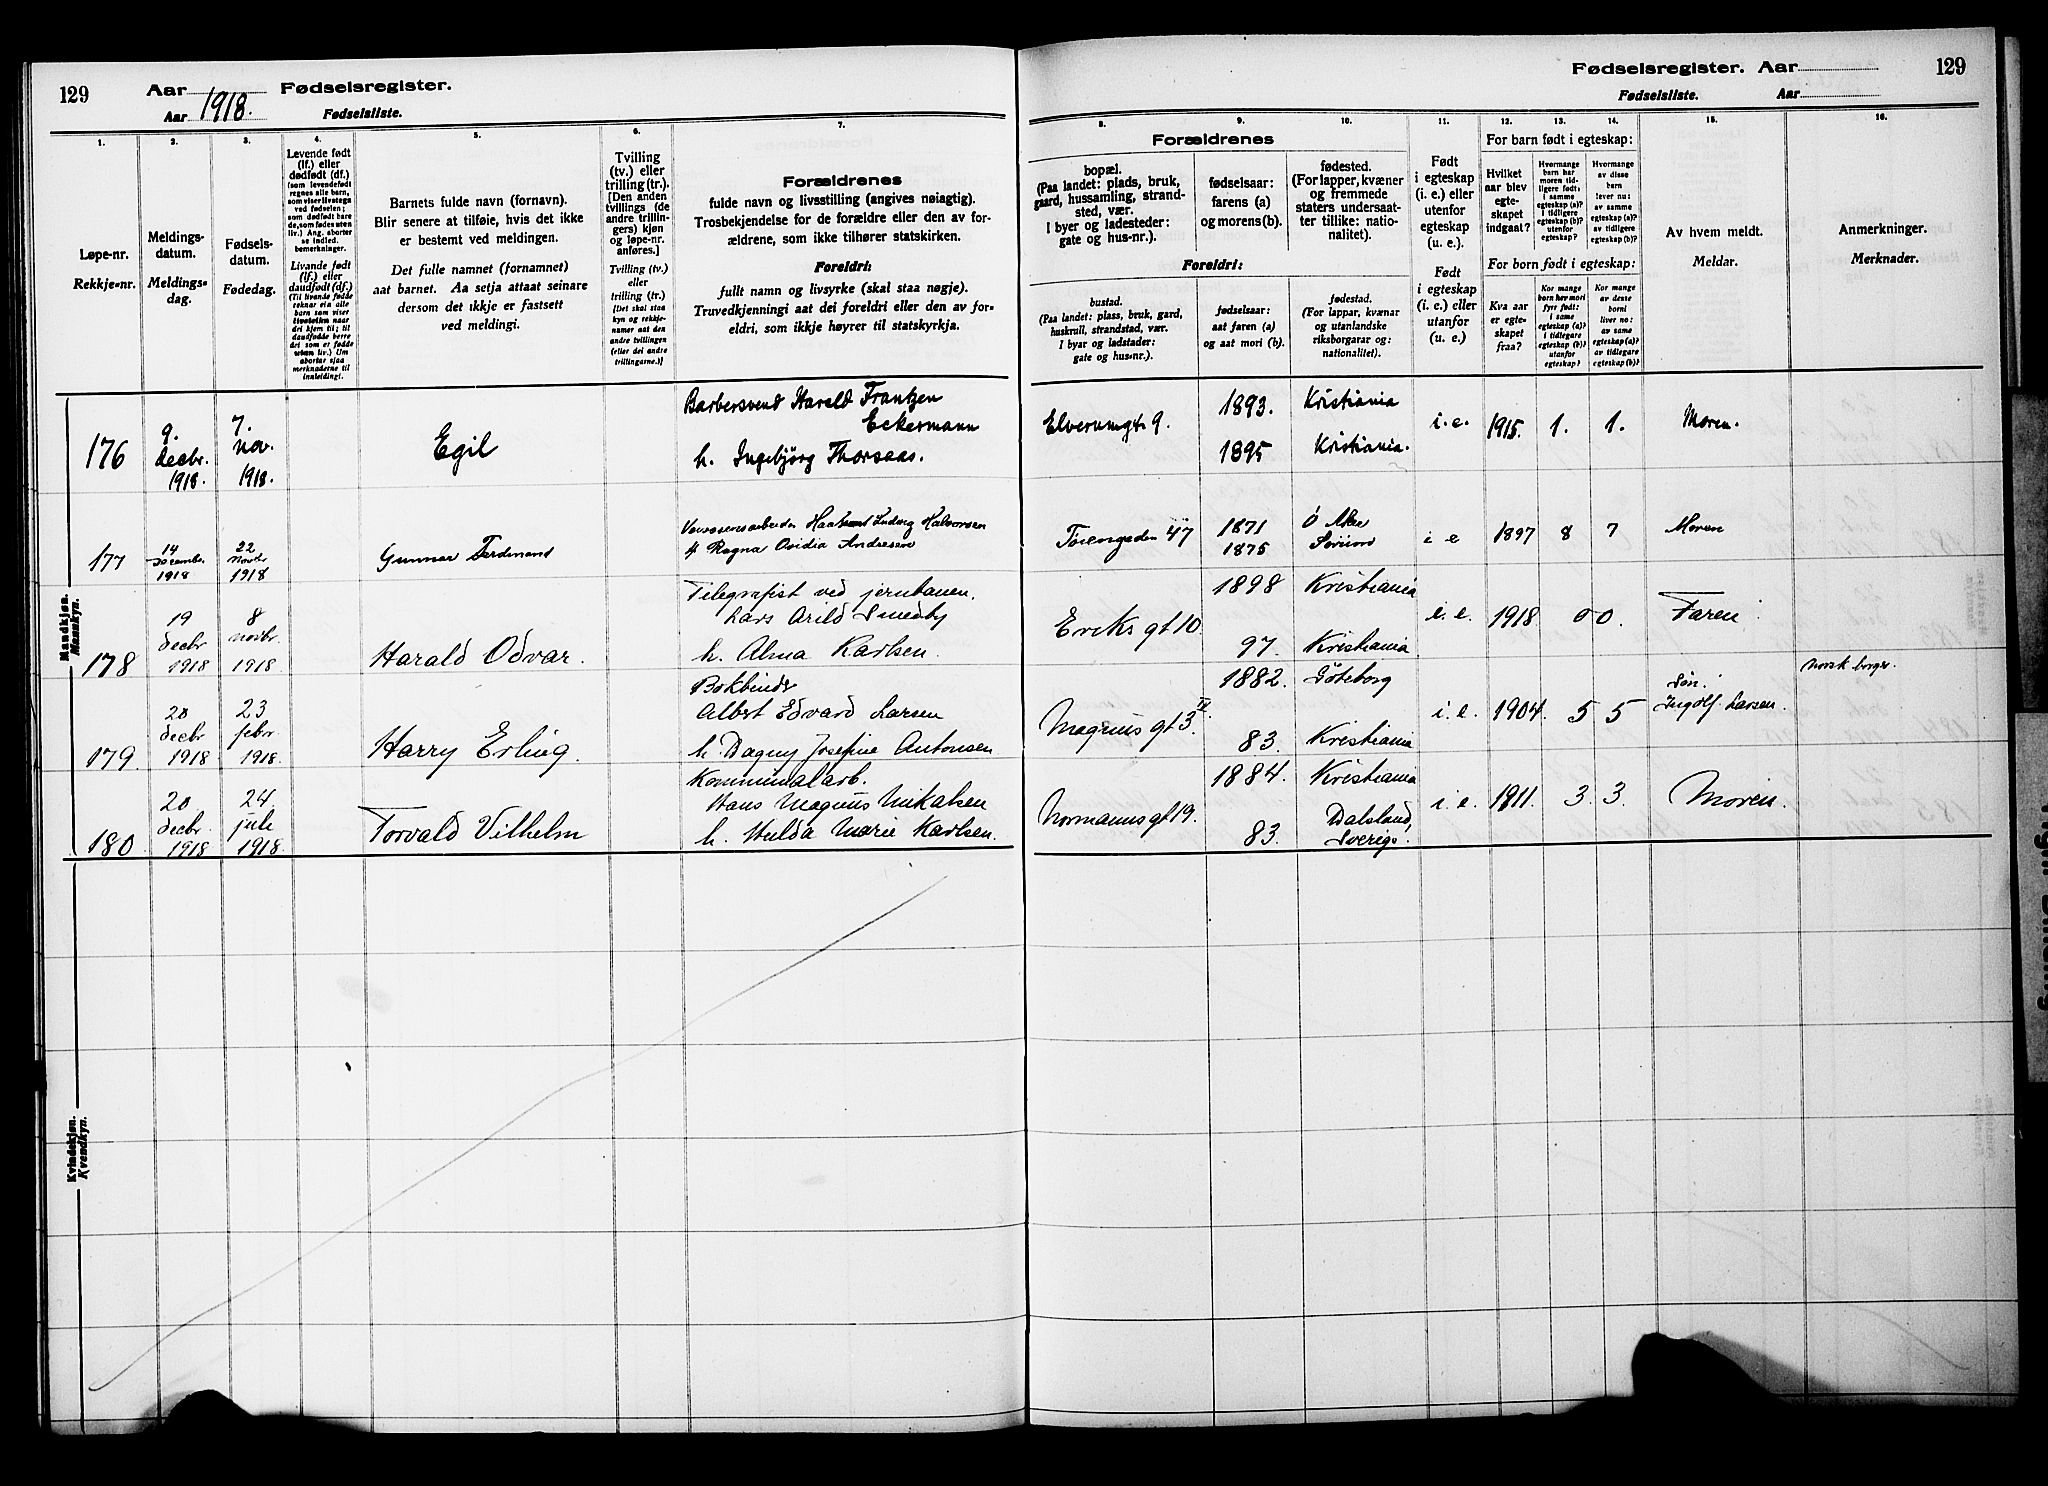 129
Aar 1918. Fødselsregister.
Aar Fødselsliste.
1.
2.
3.
4.
5.
6.
7.
Løpe-nr.
Rekkje-nr.
Meldings-
datum.
Meldings-
dag.
Fødsels-
datum.
Fødedag.
Levende født
(lf.) eller
dødfødt (df.)
Livande født
(lf.) eller
daudfødt (df.)
Barnets fulde navn (fornavn).
Blir senere at tilføie, hvis det ikke
er bestemt ved meldingen.
Det fulle namnet (fornamnet)
aat barnet. Aa setja attaat seinare
dersom det ikkje er fastsett
ved meldingi.
Tvilling
(tv.) eller
trilling (tr.)
[Den anden
tvillings (de
andre trillin-
gers) kjøn
og løpe-nr.
anføres.]
Tvilling (tv.)
eller
trilling (tr.)
Forældrenes
fulde navn og livsstilling (angives nøiagtig).
Trosbekjendelse for de forældre eller den av for-
ældrene, som ikke tilhører statskirken.
Foreldri:
fullt namn og livsyrke (skal staa nøgje).
Truvedkjenningi aat dei foreldri eller den av for-
eldri, som ikkje høyrer til statskyrkja.
Mandkjøn.
Mannkyn.
176
9.
decbr.
1918.
7.
nov.
1918.
Egil
Barbersvend Harald Frantzen
Eckermann
h. Ingebjörg Thorsaas.
177
14
December
1918
22
Novbr
1918
Gunnar Ferdinand
Ludvig Halvorsen
Ragna Ovidia Andresen
178
19
decbr
1918
8
novbr.
1918.
Harald Odvar.
Telegrafist ved jernbanen.
Lars Arild Smedby
h. Alma Karlsen.
179.
20
decbr
1918
23
febr.
1918.
Harry Erling.
Bokbinder
Albert Edvard Larsen
h. Dagny Josefine Antonsen
180
20
decbr.
1918
24
juli
1918.
Torvald Vilhelm
Kommunalarb.
Hans Magnus Mikalsen
h. Hulda Marie Karlsen.
Kvindekjøn.
Kvendkyn.
Fødselsregister. Aar 129
Fødselsliste. Aar
8.
9.
10.
11.
12.
13.
14.
15.
16.
Forældrenes
bopæl.
(Paa landet: plads, bruk,
gaard, hussamling, strand-
sted, vær.
I byer og ladesteder:
gate og hus-nr.).
fødselsaar:
farens (a)
og morens (b).
fødested.
(For lapper, kvæner
og fremmede
staters undersaat-
ter tillike: natio-
nalitet).
Foreldri:
bustad.
(Paa landet: plass, bruk, gard,
huskrull, strandstad, vær.
I byar og ladstader:
gate og hus-nr.).
fødselsaar:
aat faren (a)
og aat mori (b).
fødestad.
(For lappar, kvænar
og utanlandske
riksborgarar og:
nationalitet).
Født
i egteskap
(i. e.) eller
utenfor
egteskap
(u. e.).
Født
i egteskap
(i. e.) eller
utanfor
(u. e.)
For barn født i egteskap:
Hvilket
aar blev
egte-
skapet
indgaat?
Hvormange
barn har
moren tid-
ligere født:
i samme
egteskap (a)?
i tidligere
egteskap (b)?
utenfor
egteskap?
Hvormange
av disse
barn
lever nu:
av samme
egteskap (a)?
av tidligere
egteskap (b)?
For born født i egteskap:
Kva aar
er egte-
skapet
fraa?
Kor mange
born hev mori
fyrr født:
i same
egteskap (a)?
i tidlegare
egteskap (b)?
utanfor
egteskap?
Kor mange
av desse
borni
liver no:
av same
egteskap (a)?
av tidlegare
egteskap (b)?
Av hvem meldt.
Meldar.
Anmerkninger.
Merknader.
Elverumgt. 9.
1893.
1895
Kristiania
Kristiania.
i.e.
1915.
1.
1.
Moren.
Tøiengaden 47
1871
1875
Ö Aker
Sørum
i e
1897
8
7
Moren
Eriks gt 10.
1898
97.
Kristiania
Kristiania
i.e.
1918
0
0.
Faren
Magnus gt 3 II.
1882.
83.
Göteborg
Kristiania
i.e.
1904.
5
5
Søn.
Ingolf. Larsen.
norsk borger.
Normanns gt 19.
1884.
83.
Kristiania
Dalsland,
Sverige.
i.e.
1911.
3.
3.
Moren.